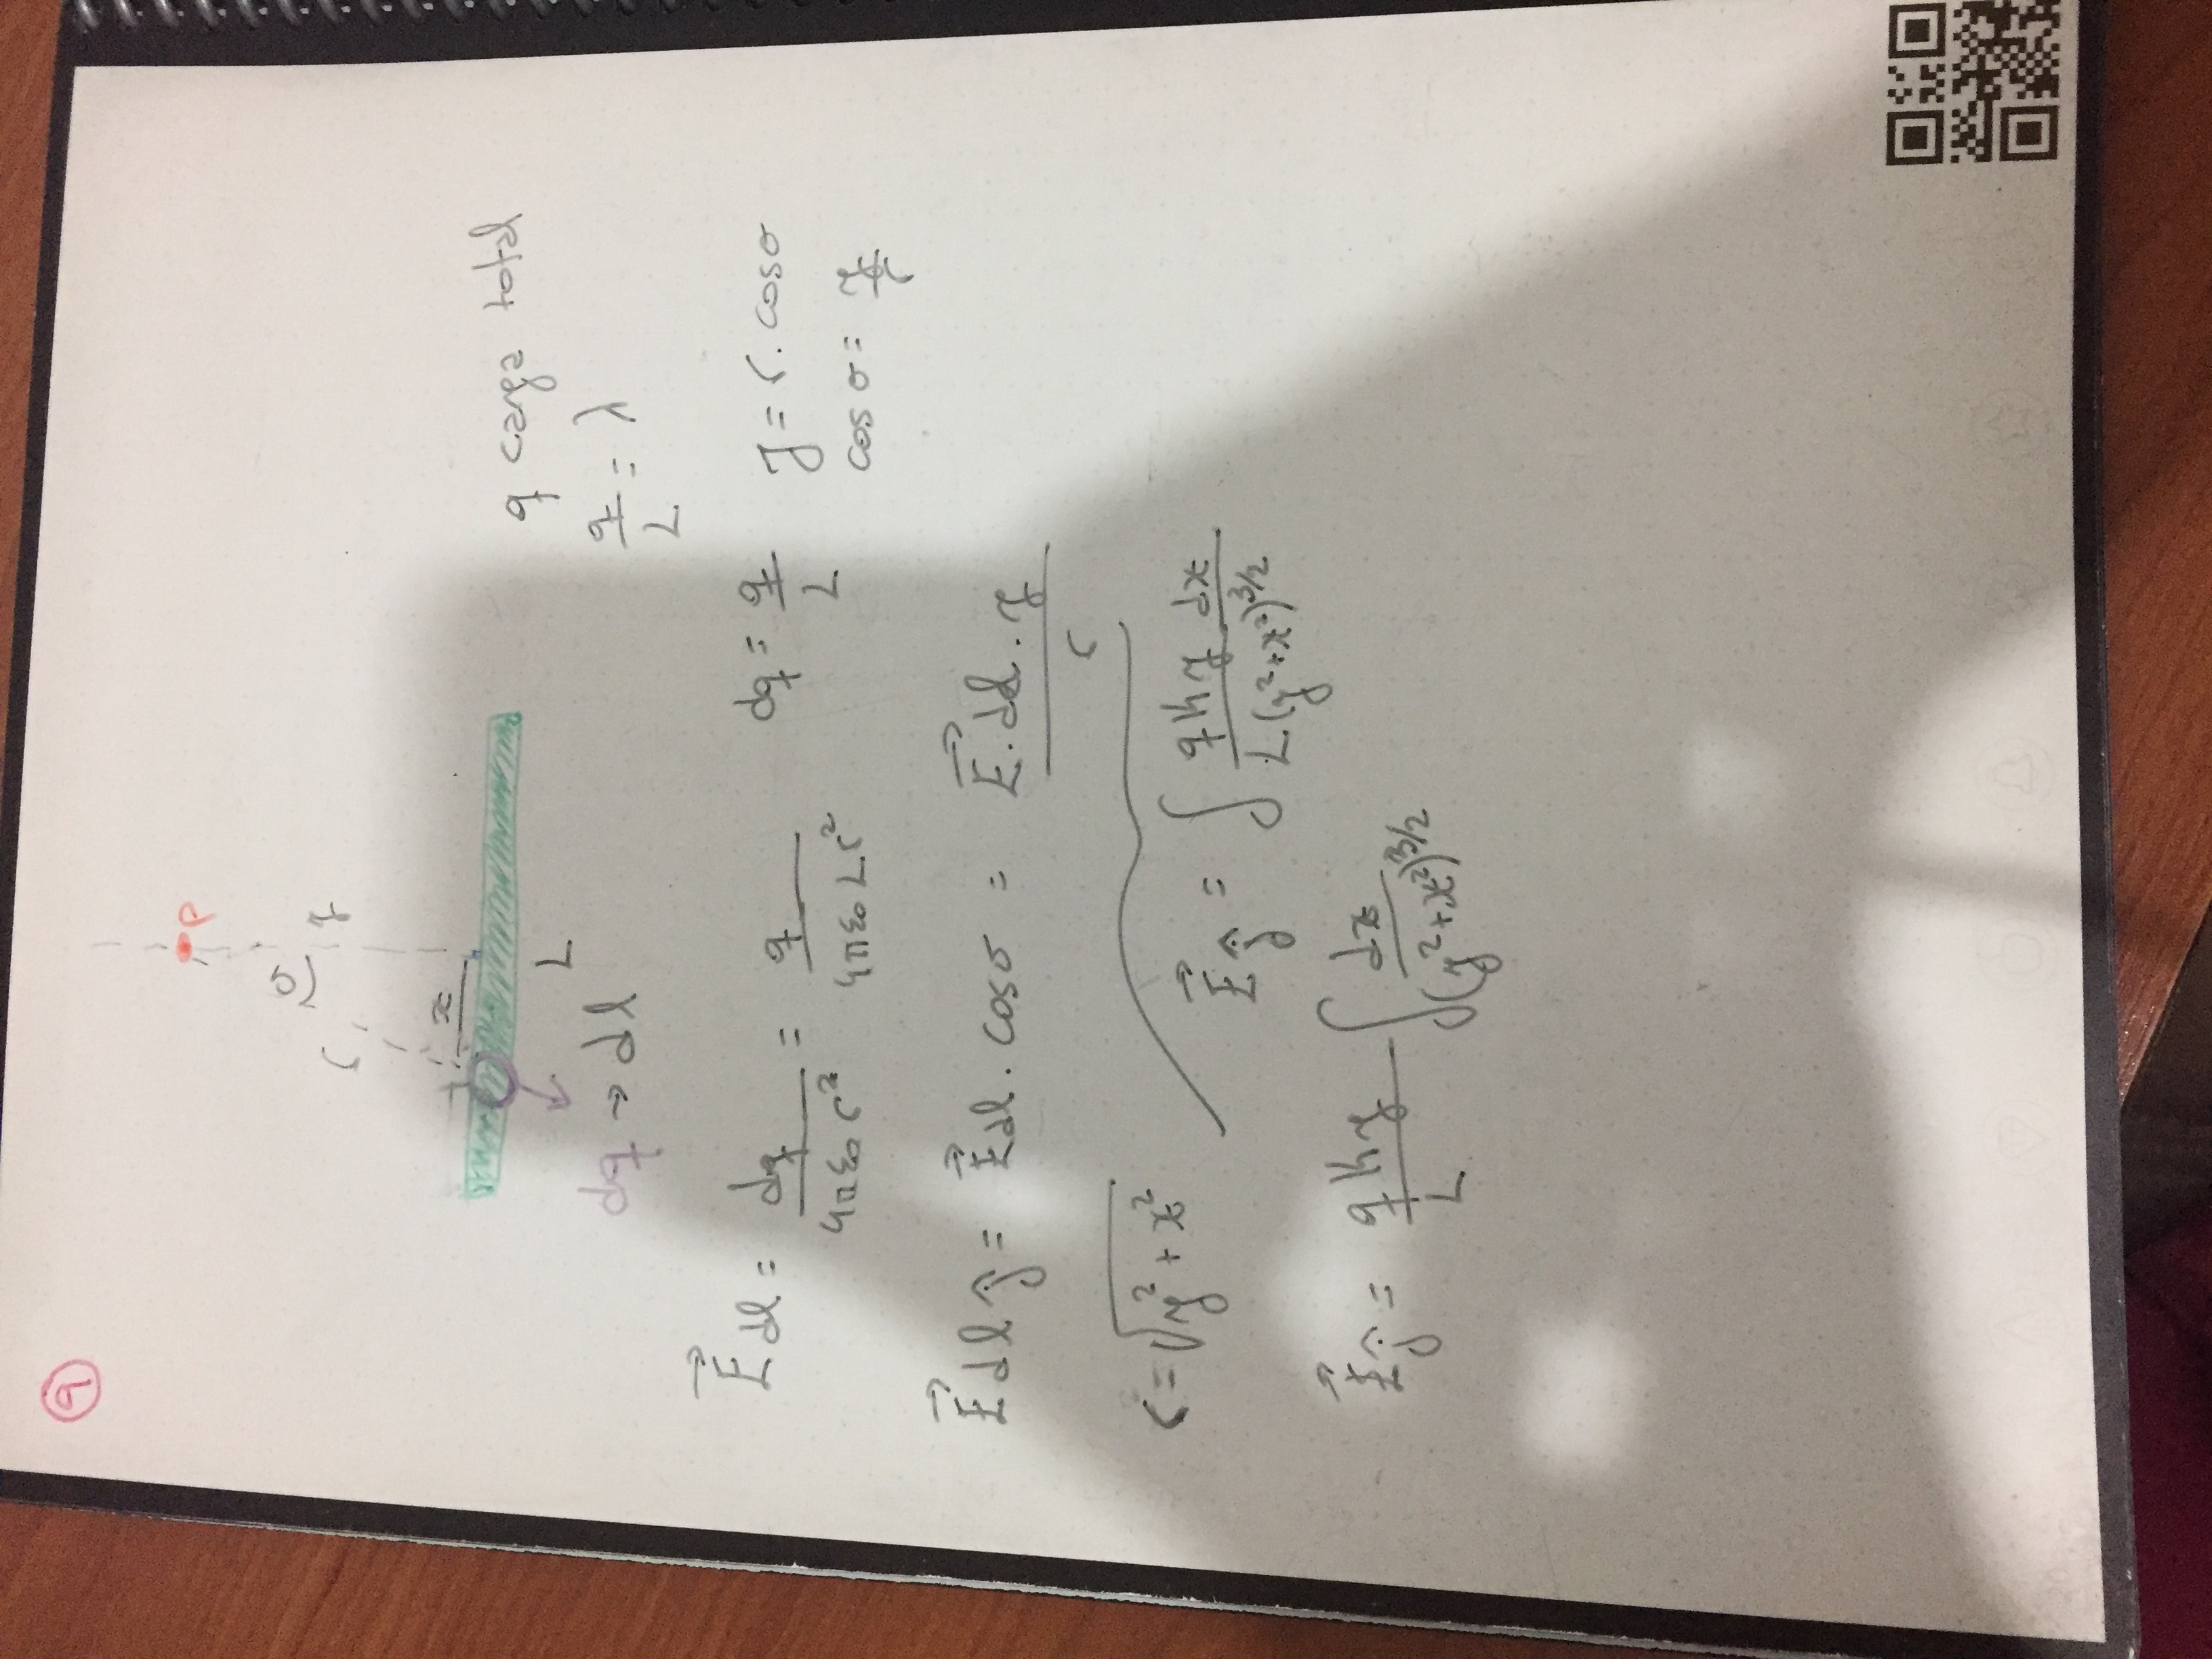 9
P
σ
r y
x
L
dq → dl
q carga total
q/L = λ
E⃗dl = dq/(4πε₀r²) = q/(4πε₀Lr²)
dq = q/L
y = r. cosσ
cosσ = y/r
E⃗dl ĵ = E⃗dl . cosσ = E⃗.dl . y/r
r = √(y² + x²)
E⃗ĵ = ∫ qKy dx/(L(y²+x²)^3/2)
E⃗ĵ = qKy/L ∫ dx/(y²+x²)^3/2